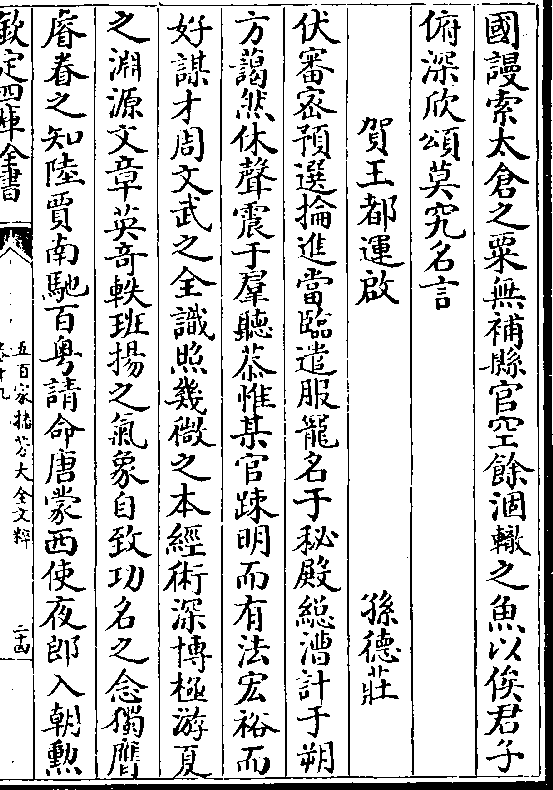 國謾索太倉之粟無補縣官空餘涸轍之魚以俟君子
俯深欣頌莫究名言
賀王都運啟 孫德莊
伏審宻預選掄進當臨遣服寵名于秘殿緫漕計于朔
方藹然休聲震于羣聽恭惟某官踈明而有法宏裕而
好謀才周文武之全識照幾微之本經術深博極游夏
之淵源文章英竒軼班揚之氣象自致功名之念獨膺
睿眷之知陸賈南馳百粤請命唐蒙西使夜郎入朝勲
欽定四庫全書
五百家播芳大全文粹
卷十九
二十四